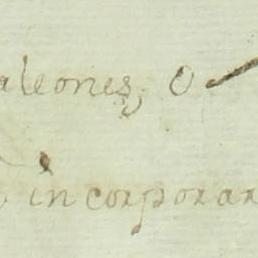 aleones, o
incorporar